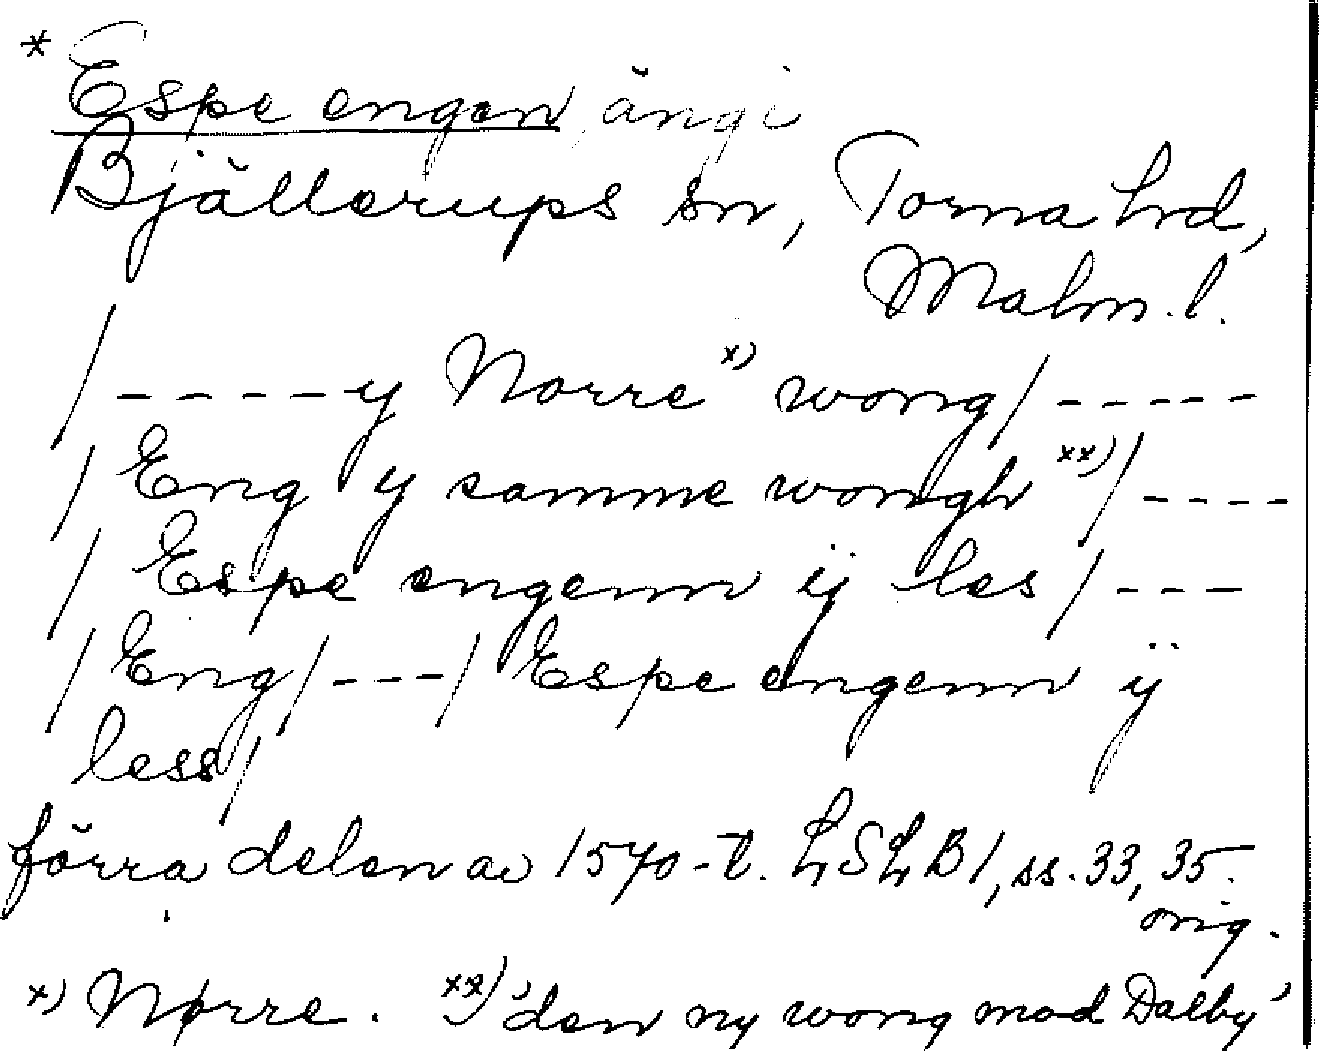 * Espe engen, äng i
Bjällerups sn, Torna hrd,
Malm. l.
/ - - - - y Norre x) wong / - - - - -
/ Eng y samme wongh xx) / - - - -
/ Espe engenn ij les / - - -
/ Eng / - - - / Espe engenn ij
less /
förra delen av 1570-t. LSLB 1, ss. 33, 35.
orig.
x) Nørre. xx) 'den ny wong mod Dalby'